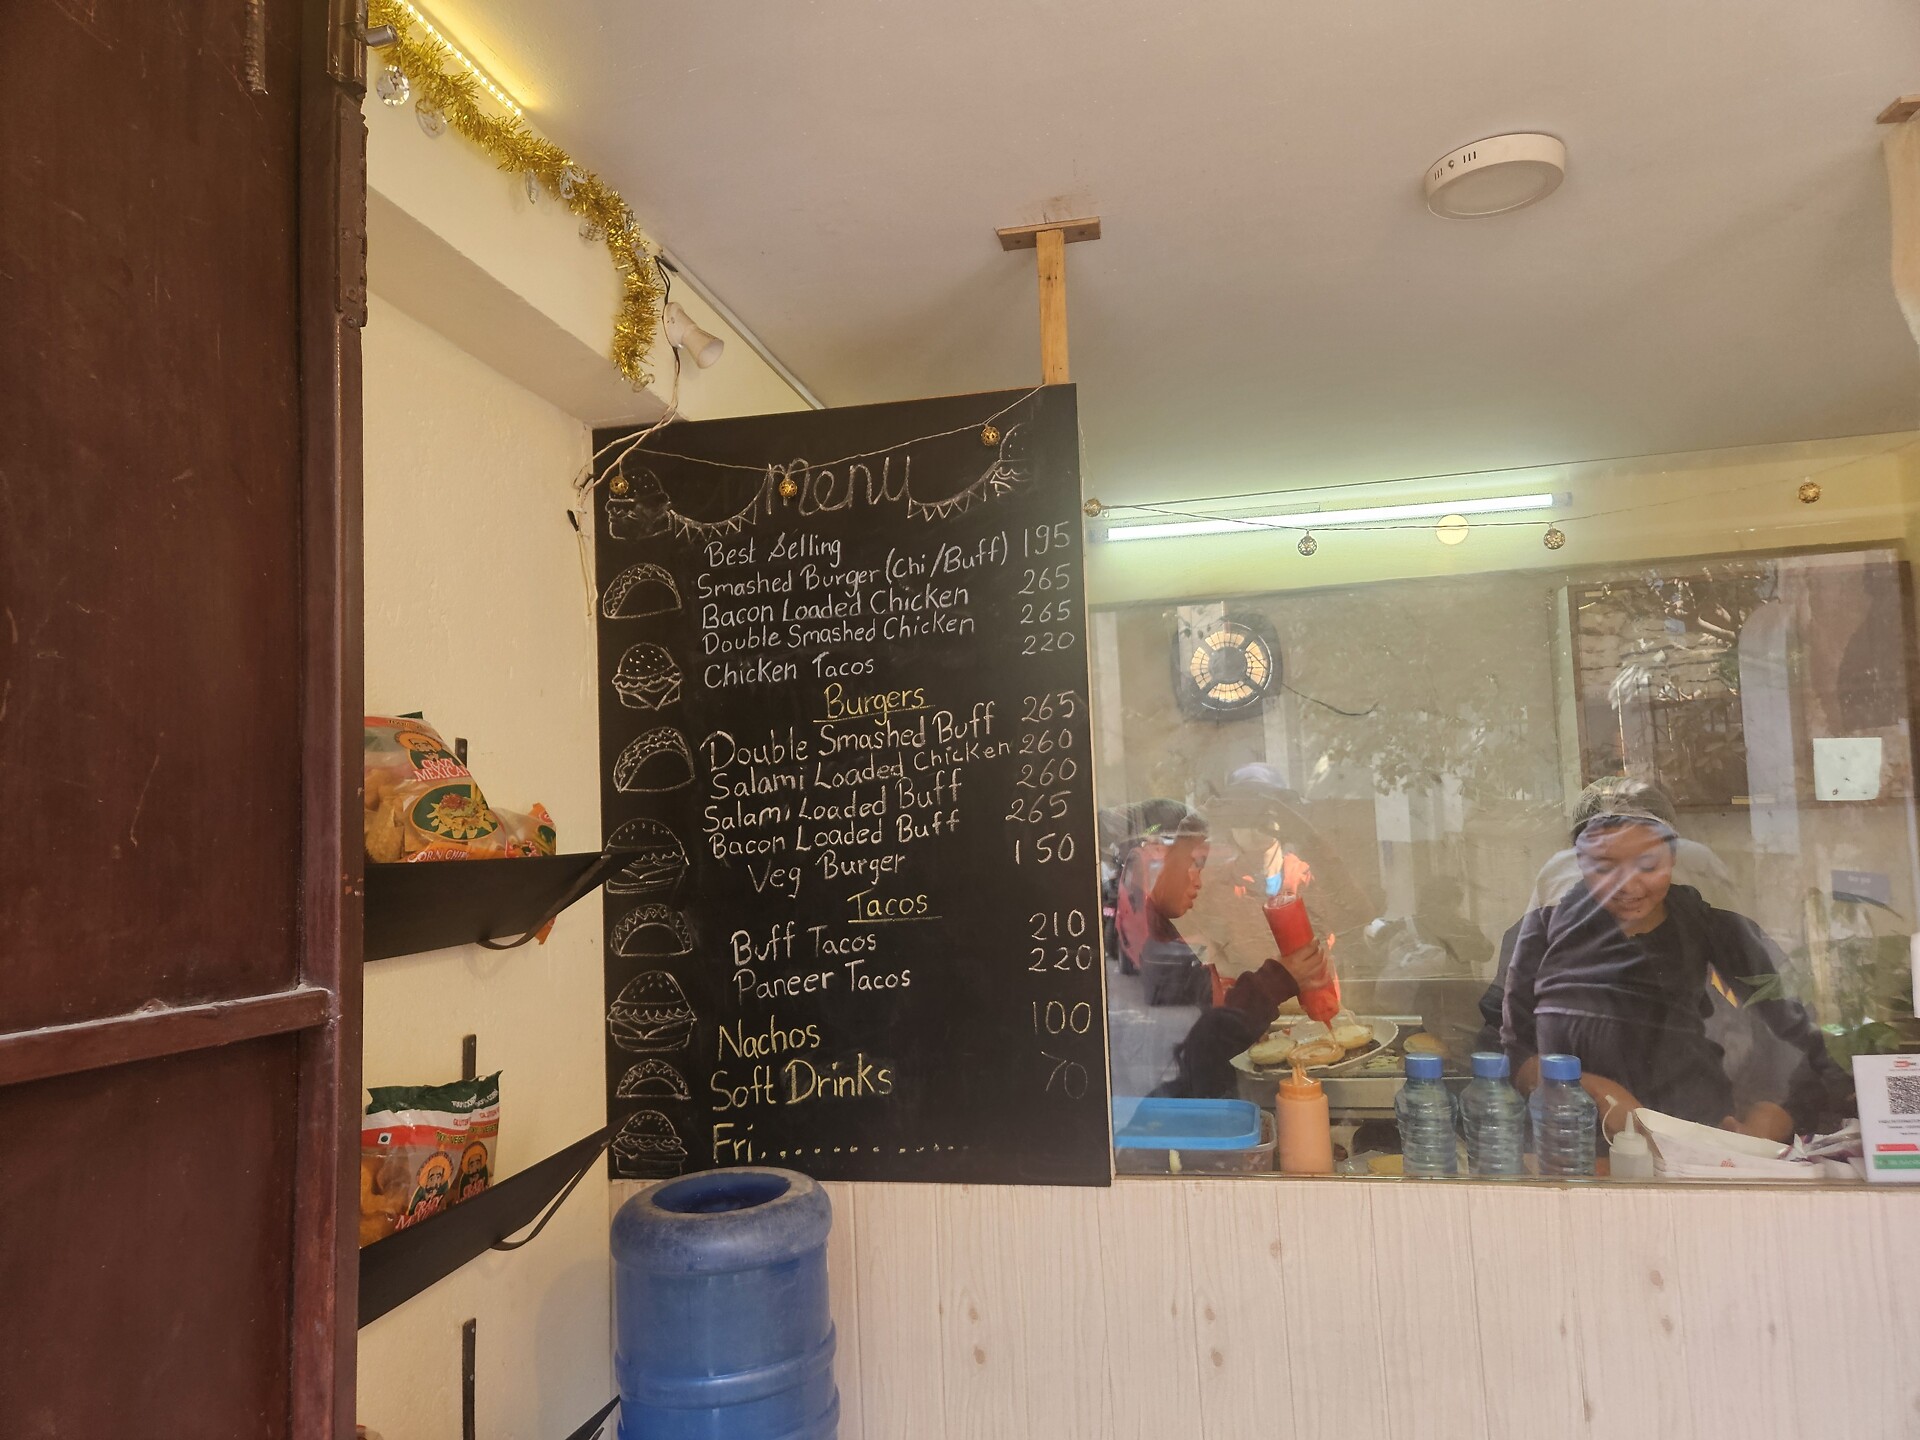 Menu
Best Selling
Smashed Burger (Chi/Buff) 195
Bacon Loaded Chicken 265
Double Smashed Chicken 265
Chicken Tacos 220
Burgers
Double Smashed Buff 265
Salami Loaded Chicken 260
Salami Loaded Buff 260
Bacon Loaded Buff 265
Veg Burger 150
Tacos
Buff Tacos 210
Paneer Tacos 220
Nachos 100
Soft Drinks 70
Fri..............
MEXICA
CORN CHIP